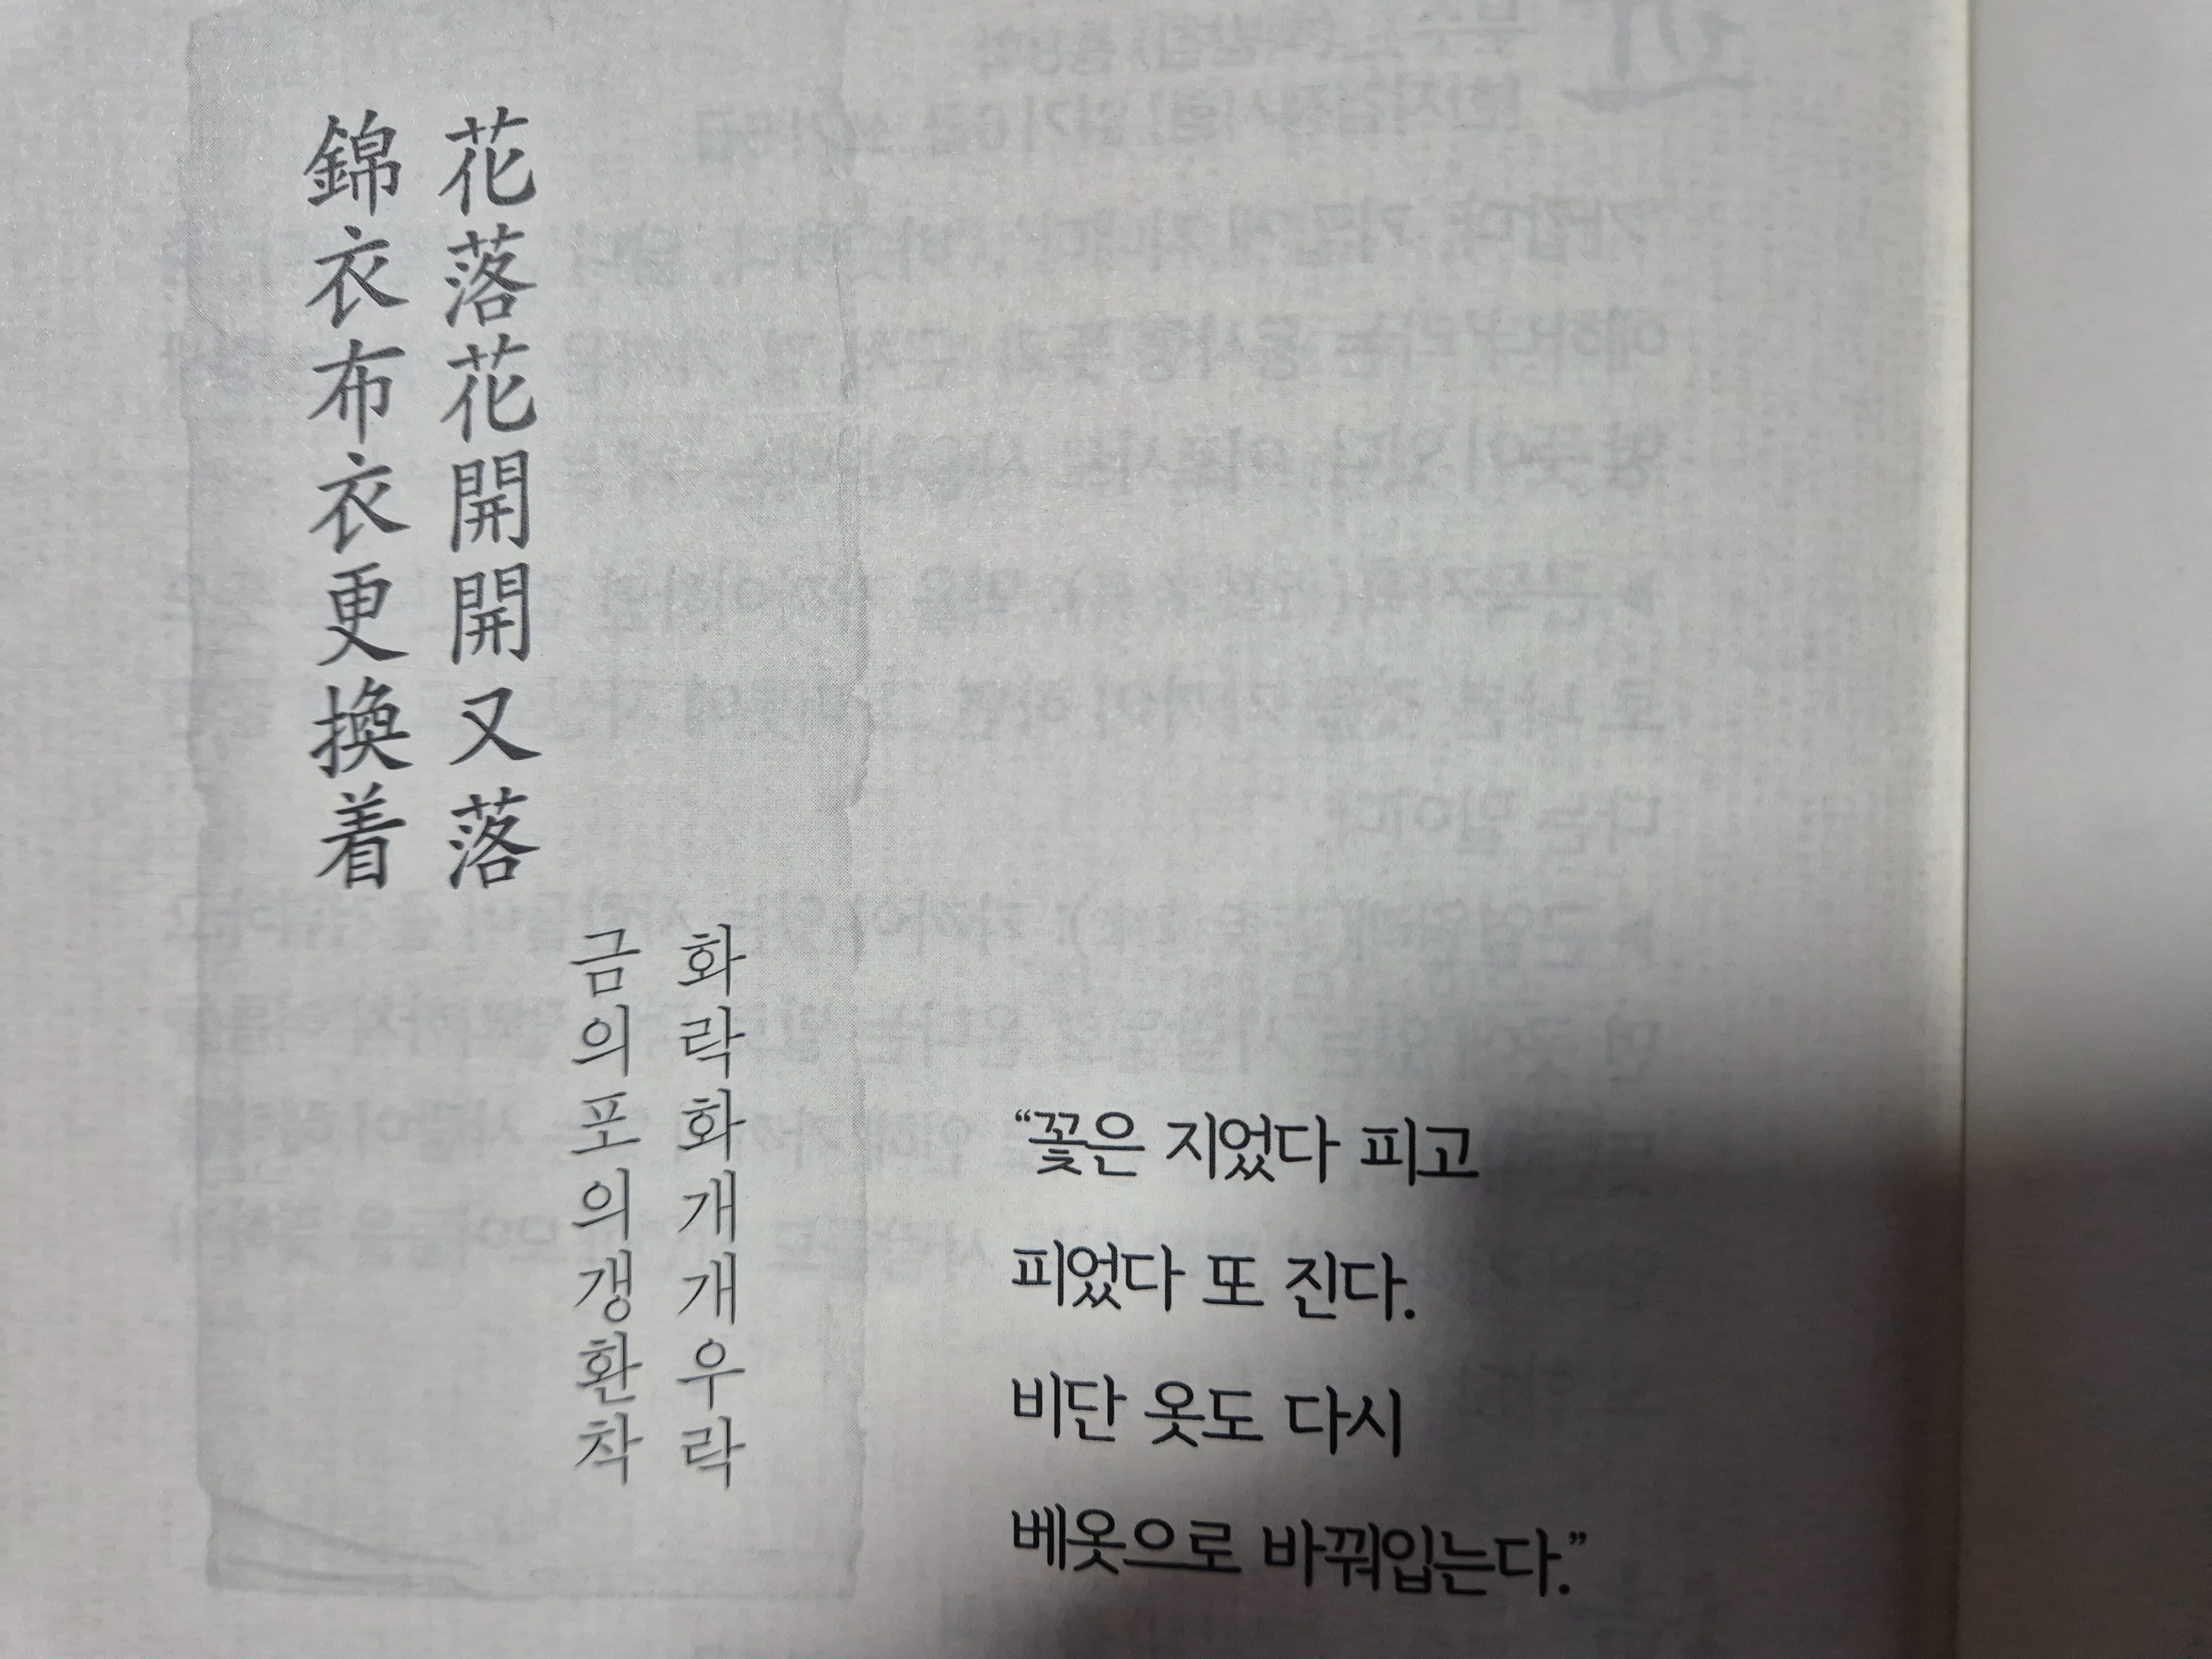 花落花開開又落
錦衣布衣更換着
화락화개개우락
금의포의갱환착
“꽃은 지었다 피고
피었다 또 진다.
비단 옷도 다시
베옷으로 바꿔입는다.”